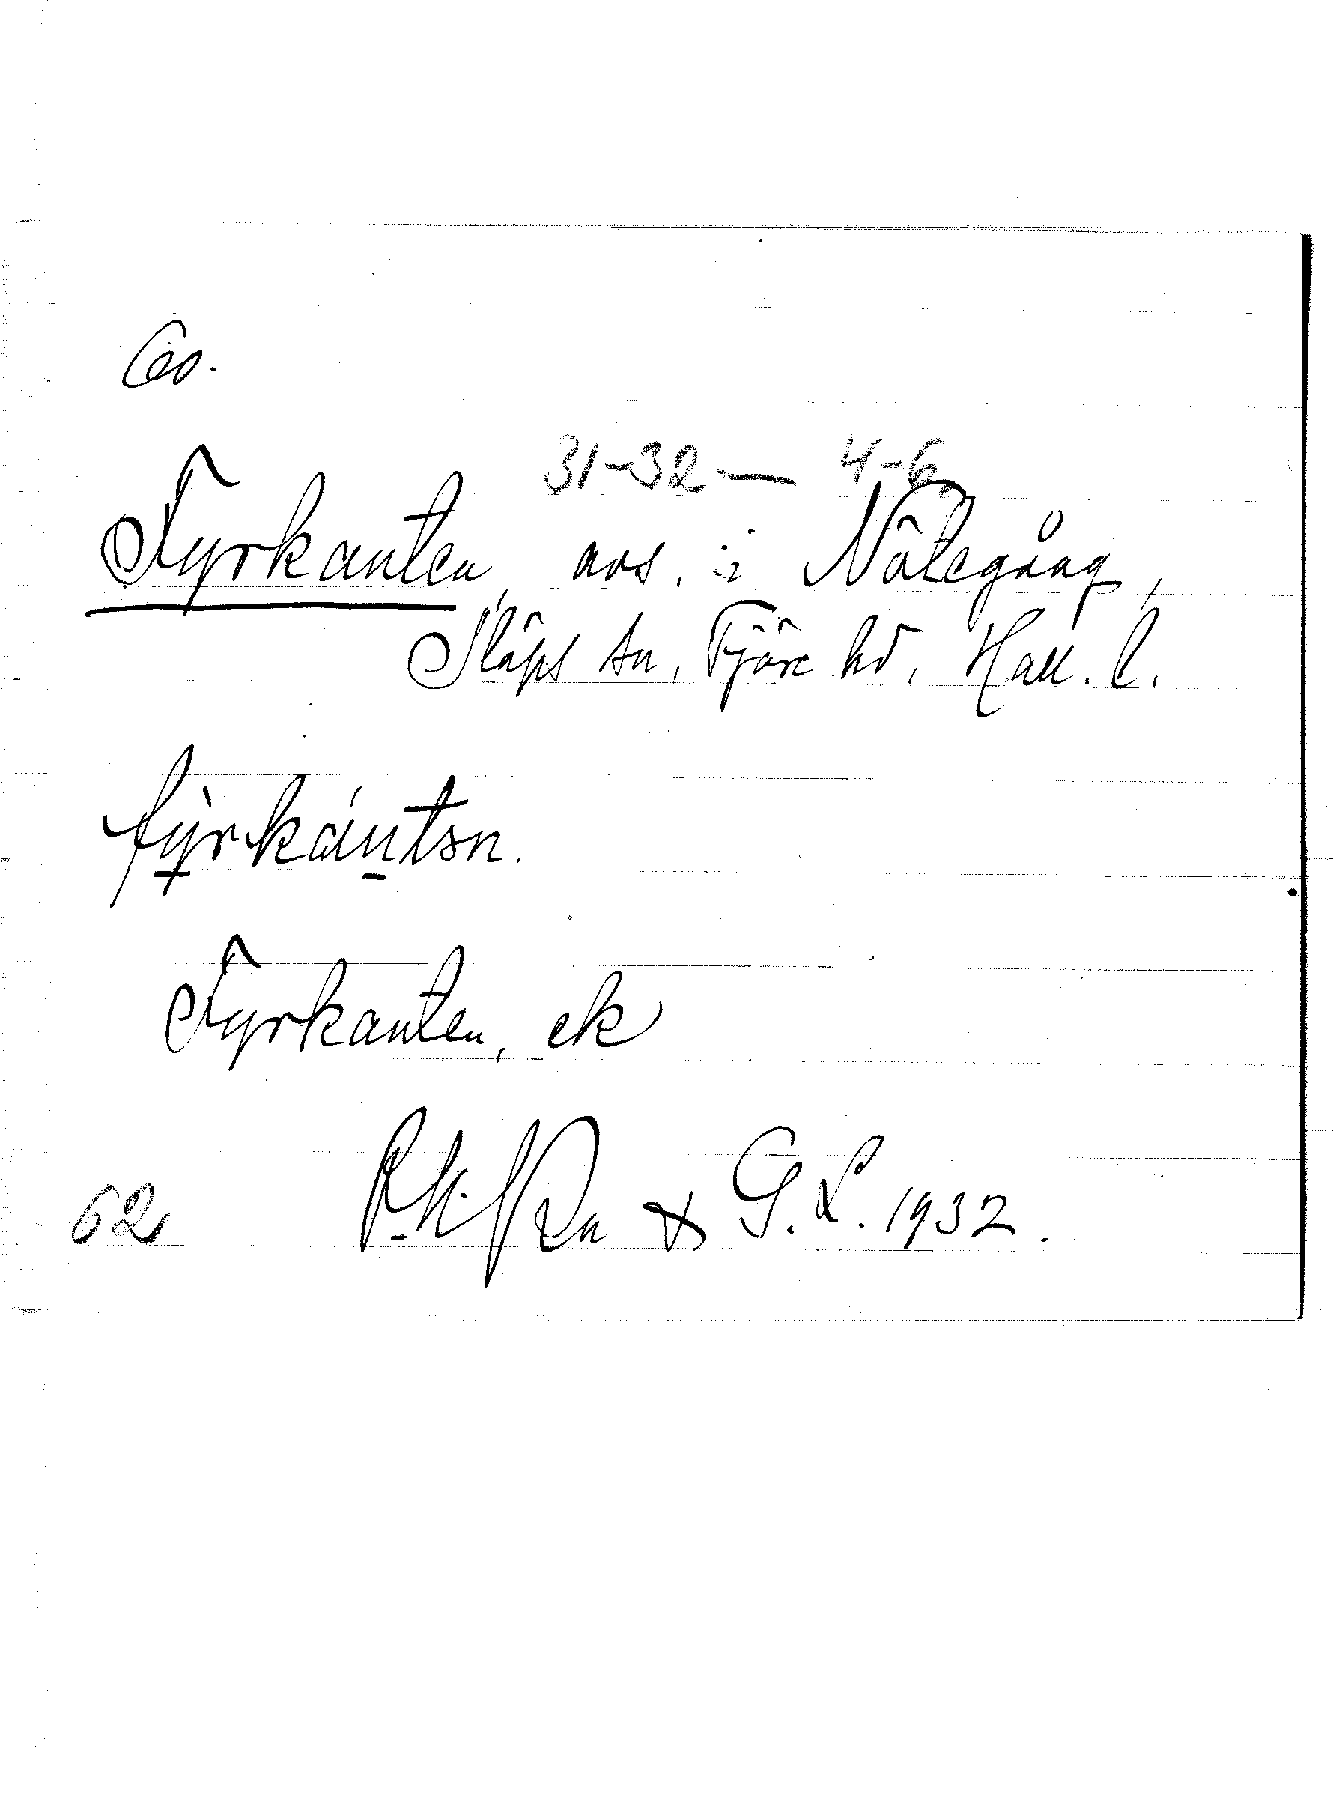 Go.
31-32 — 4-6
Fyrkanten, avs. i Nötegång,
Släps sn, Fjäre hd, Hall. l.
fỳ̱rkán̠tsn.
Fyrkanten, ek
62 & G.L. 1932.